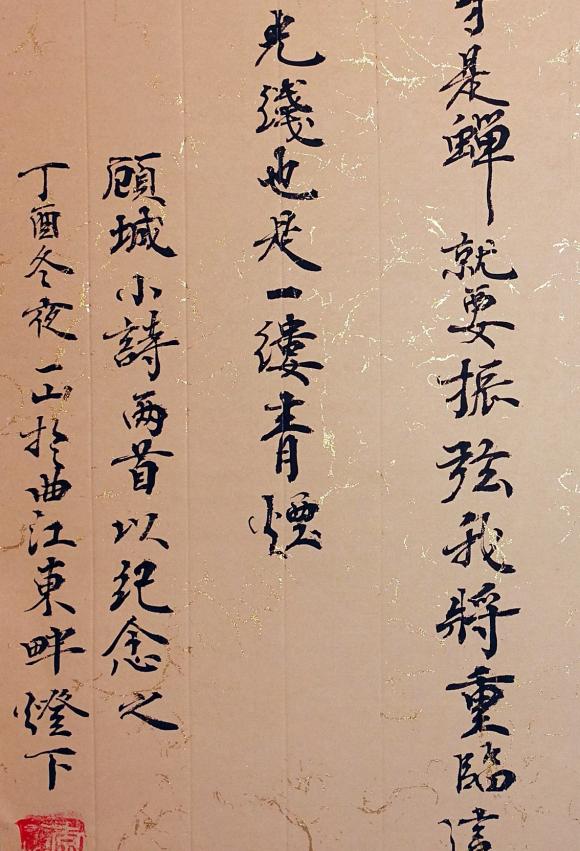 是蟬就要振弦我將重臨
光綫也是一縷青煙
顧城小詩兩首以紀念之
丁酉冬夜一山於曲江東畔燈下